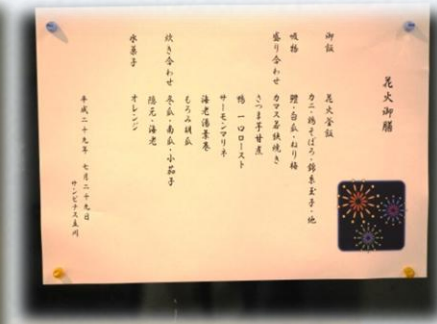 花火御膳
御飯 花火釜飯
カニ・鶏そぼろ・錦糸玉子・他
吸物 鱧・白瓜・ねり梅
盛り合わせ カマス若狭焼き
さつま芋甘煮
鴨 一口ロースト
サーモンマリネ
海老湯葉巻
もろみ胡瓜
炊き合わせ 冬瓜・南瓜・小茄子
隠元・海老
水菓子 オレンジ
平成二十九年 七月二十九日
サンピナス立川